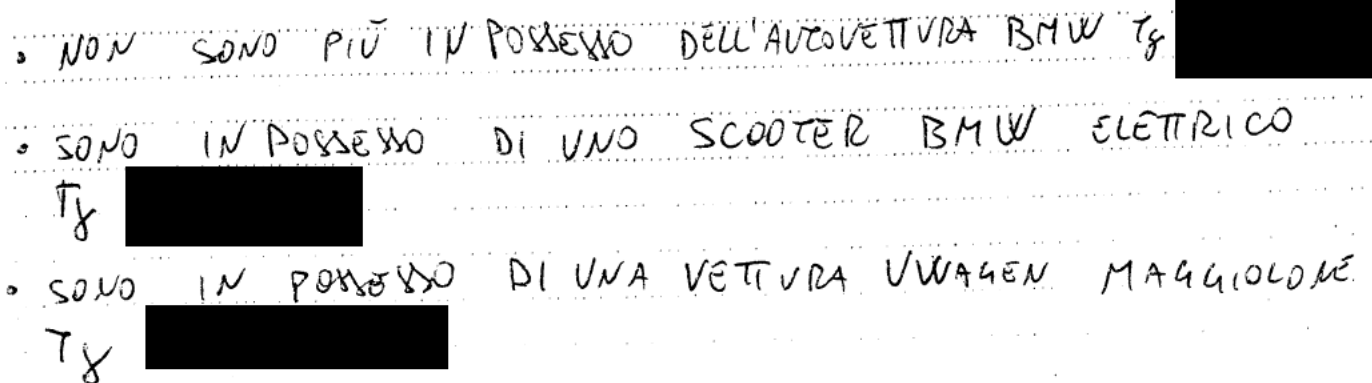 • NON SONO PIÙ IN POSSESSO DELL'AUTOVETTURA BMW Tg
• SONO IN POSSESSO DI UNO SCOOTER BMW ELETTRICO
Tg
• SONO IN POSSESSO DI UNA VETTURA VWAGEN MAGGIOLONE
Tg